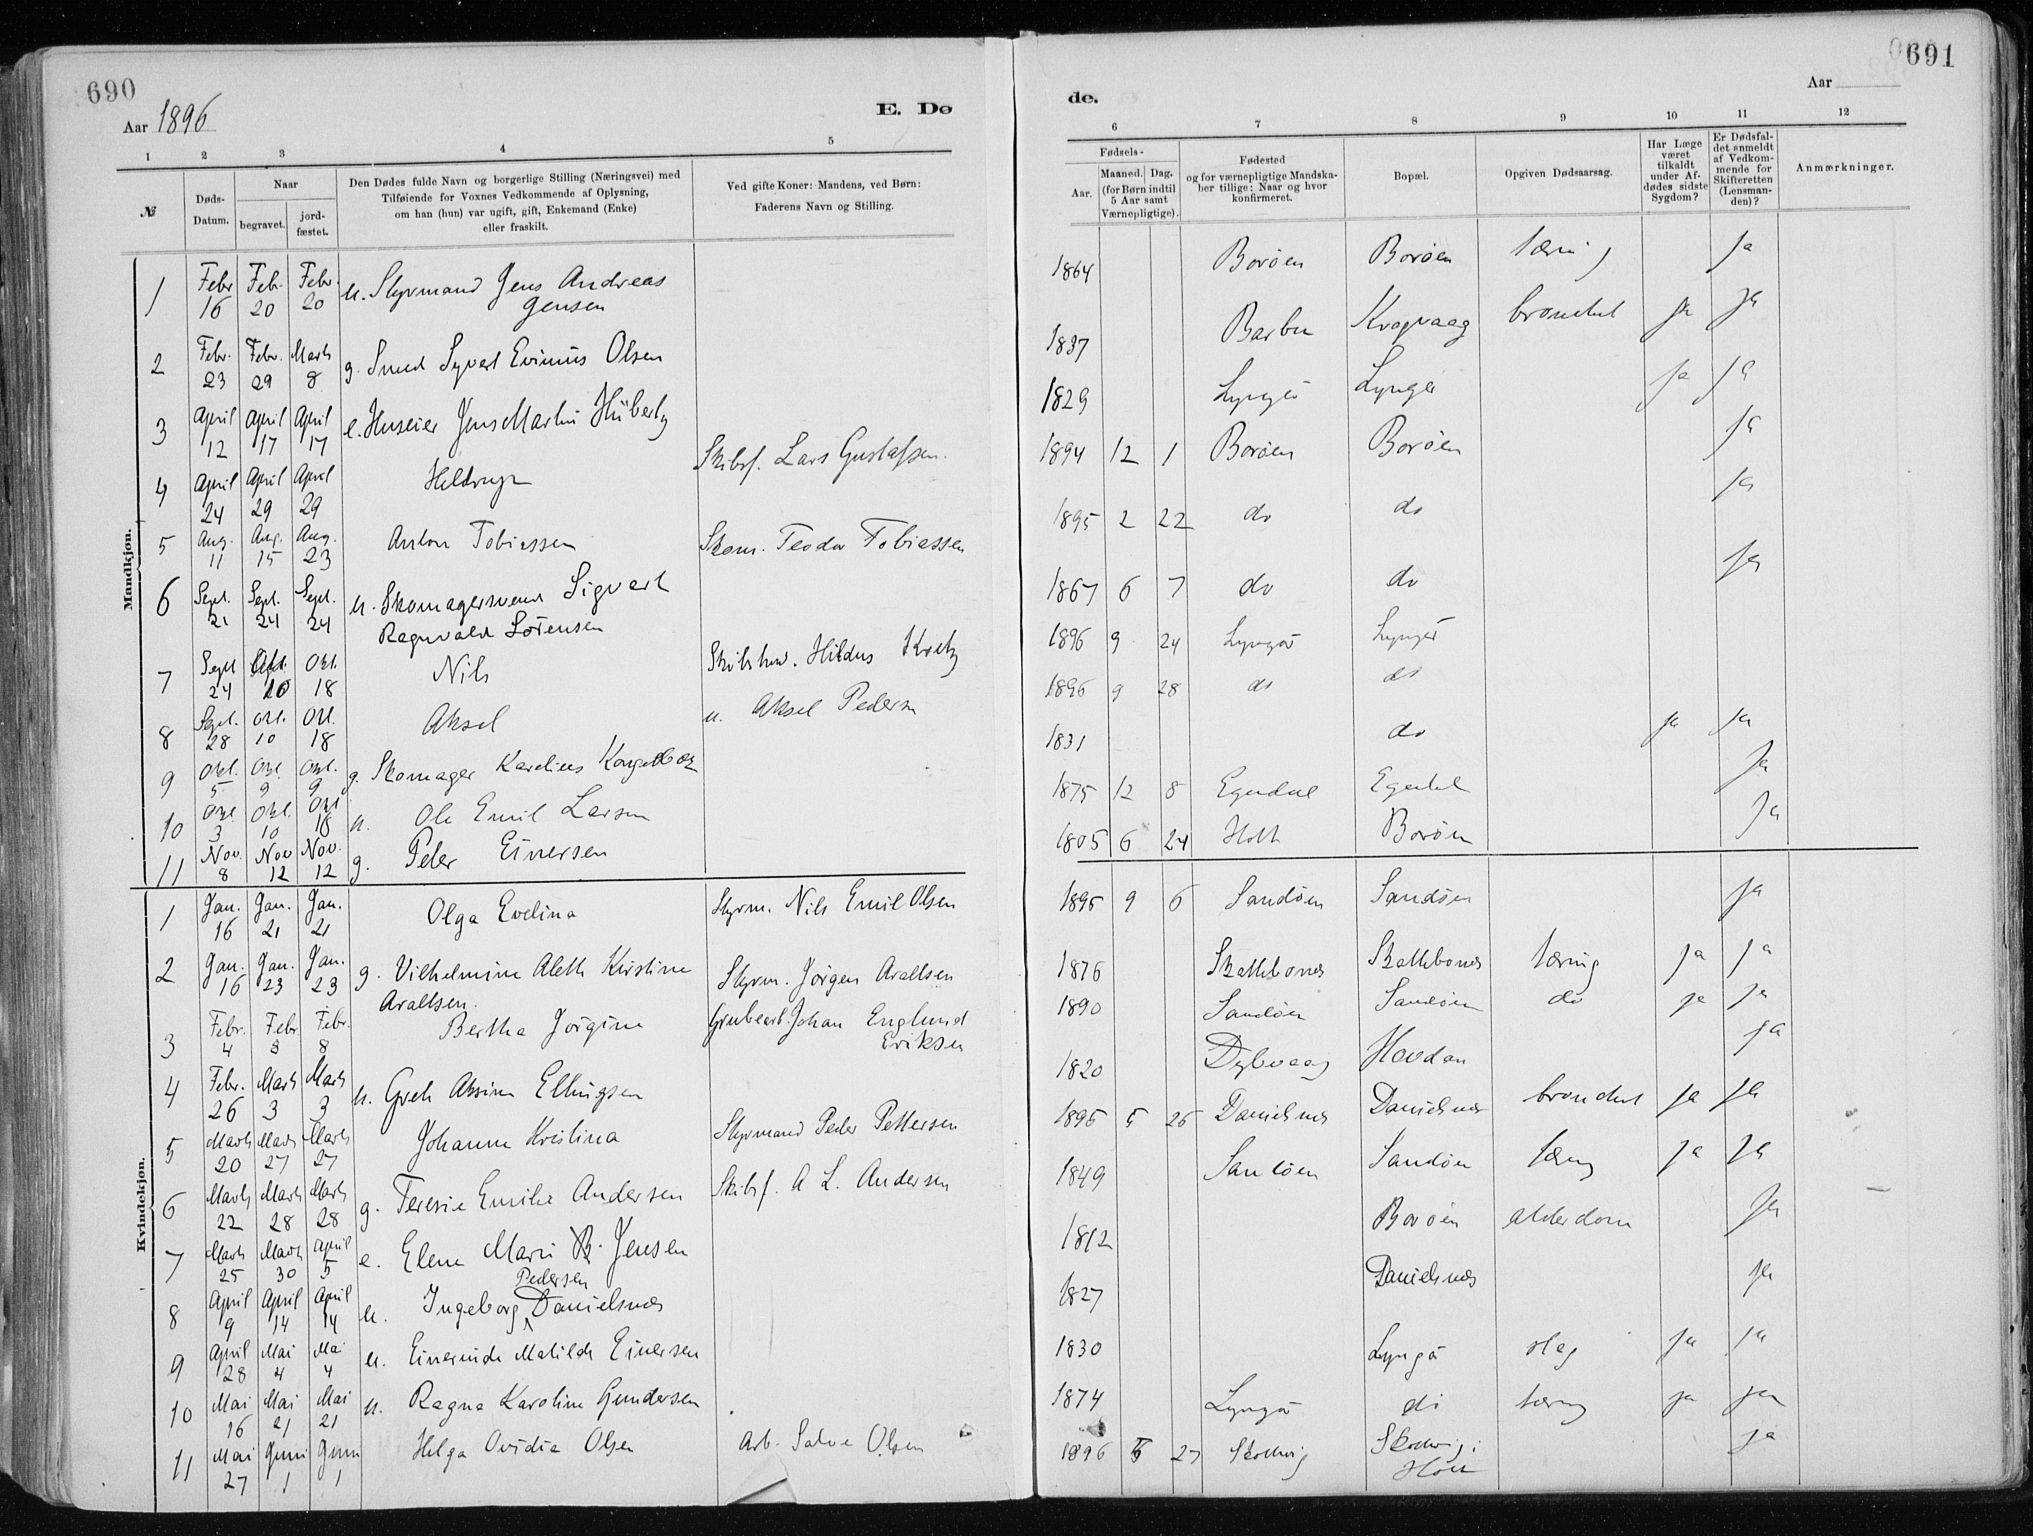 690
Aar 1896
E. Dø
1 2 3 4 5
№
Døds-Datum.
Naar
begravet.
jord-fæstet.
Den Dødes fulde Navn og borgerlige Stilling (Næringsvei) med
Tilføiende for Voxnes Vedkommende af Oplysning,
om han (hun) var ugift, gift, Enkemand (Enke)
eller fraskilt.
Ved gifte Koner: Mandens, ved Børn:
Faderens Navn og Stilling.
Mandkjøn.
1 Febr 16 Feb. 20 Febr. 20 u. Styrmand Jens Andreas
Jensen
2 Febr. 23 Febr. 29 Marts 8 g. Smed Syvert Evinius Olsen
3 April 12 April 17 April 17 e. Huseier Jens Martin Hüberts
4 April 24 April 29 April 29 Skibsf. Lars Gustafsen.
5 Aug. 11 Aug. 15 Aug. 23 Anton Tobiassen Skom. Teodor Tobiassen
6 Sept. 21 Sept. 24 Sept. 24 u. Skomagersvend Sigvart
Ragnvald Sørensen
7 Sept 24 Okt. 10 Okt. 18 Nils Hildus
8 Sept. 28 Okt. 10 Okt. 18 Aksel u. Aksel Pedersen
9 Okt. 5 Okt. 9 Okt. 9 g. Skomager Karelius
10 Okt. 3 Okt. 10 Okt 18 u. Ole Emil Larsen
11 Nov. 8 Nov 12 Nov. 12 g. Peder Einersen
Kvindekjøn.
1 Jan. 16 Jan. 21 Jan. 21 Olga Evelina Styrm. Nils Emil Olsen
2 Jan. 16 Jan. 23 Jan. 23 g. Vilhelmine Aleth Kirstine
Araltsen. Styrm. Jørgen Araltsen
3 Febr. 4 Febr 8 Febr. 8 Bertha Jørgine Grubearb. Johan Englund
Eriksen
4 Febr. 26 Marts 3 Marts 3 u. Greth Aksine Ellingsen
5 Marts 20 Marts 27 Marts 27 Johanne Kristina Styrmand Peder Pettersen
6 Marts 22 Marts 28 Marts 28 g. Teresie Emilie Andersen Skibsf. A L. Andersen
7 Marts 25 Marts 30 April 5 e. Elene Marie B. Jensen
Pedersen
8 April 9 April 14 April 14 u. Ingeborg Danielsnæs
9 April 28 Mai 4 Mai 4 u. Einerinde Matilde Einersen
10 Mai 16 Mai 21 Mai 21 u. Ragna Karoline Gundersen
11 Mai 27 Juni 1 Juni 1 Helga Ovidia Olsen Arb. Salve Olsen
691
Aar
de.
6 7 8 9 10 11 12
Fødsels-
Aar.
Maaned. Dag.
(for Børn indtil
5 Aar samt
Værnepligtige).
Fødested
og for værnepligtige Mandska-
ber tillige: Naar og hvor
konfirmeret.
Bopæl.
Opgiven Dødsaarsag.
Har Læge
været
tilkaldt
under Af-
dødes sidste
Sygdom?
Er Dødsfal-
det anmeldt
af Vedkom-
mende for
Skifteretten
(Lensman-
den)?
Anmærkninger.
1864 Borøen Borøen tæring ja
1837 Barbu Kragvaag ja ja
1829 Lyngør Lyngør ja ja
1894 12 1 Borøen Borøen ja
1895 2 22 do do ja
1867 6 7 do do ja
1896 9 24 Lyngør Lyngør
1896 9 28 do do
1831 do ja ja
1875 12 8 Egedal Egedal ja
1805 6 24 Holt Borøen ja
1895 9 6 Sandøen Sandøen ja
1876 Skattebonæs Skattebonæs tæring ja ja
1890 Sandøen Sandøen do ja ja
1820 Dybvaag Hovdan ja
1895 5 26 Danielsnæs Danielsnæs ja ja
1849 Sandøen Sandøen tæring ja ja
1812 Borøen alderdom ja
1827 Danielsnæs ja
1830 Lyngør slag ja ja
1874 Lyngør do tæring ja ja
1896 5 27